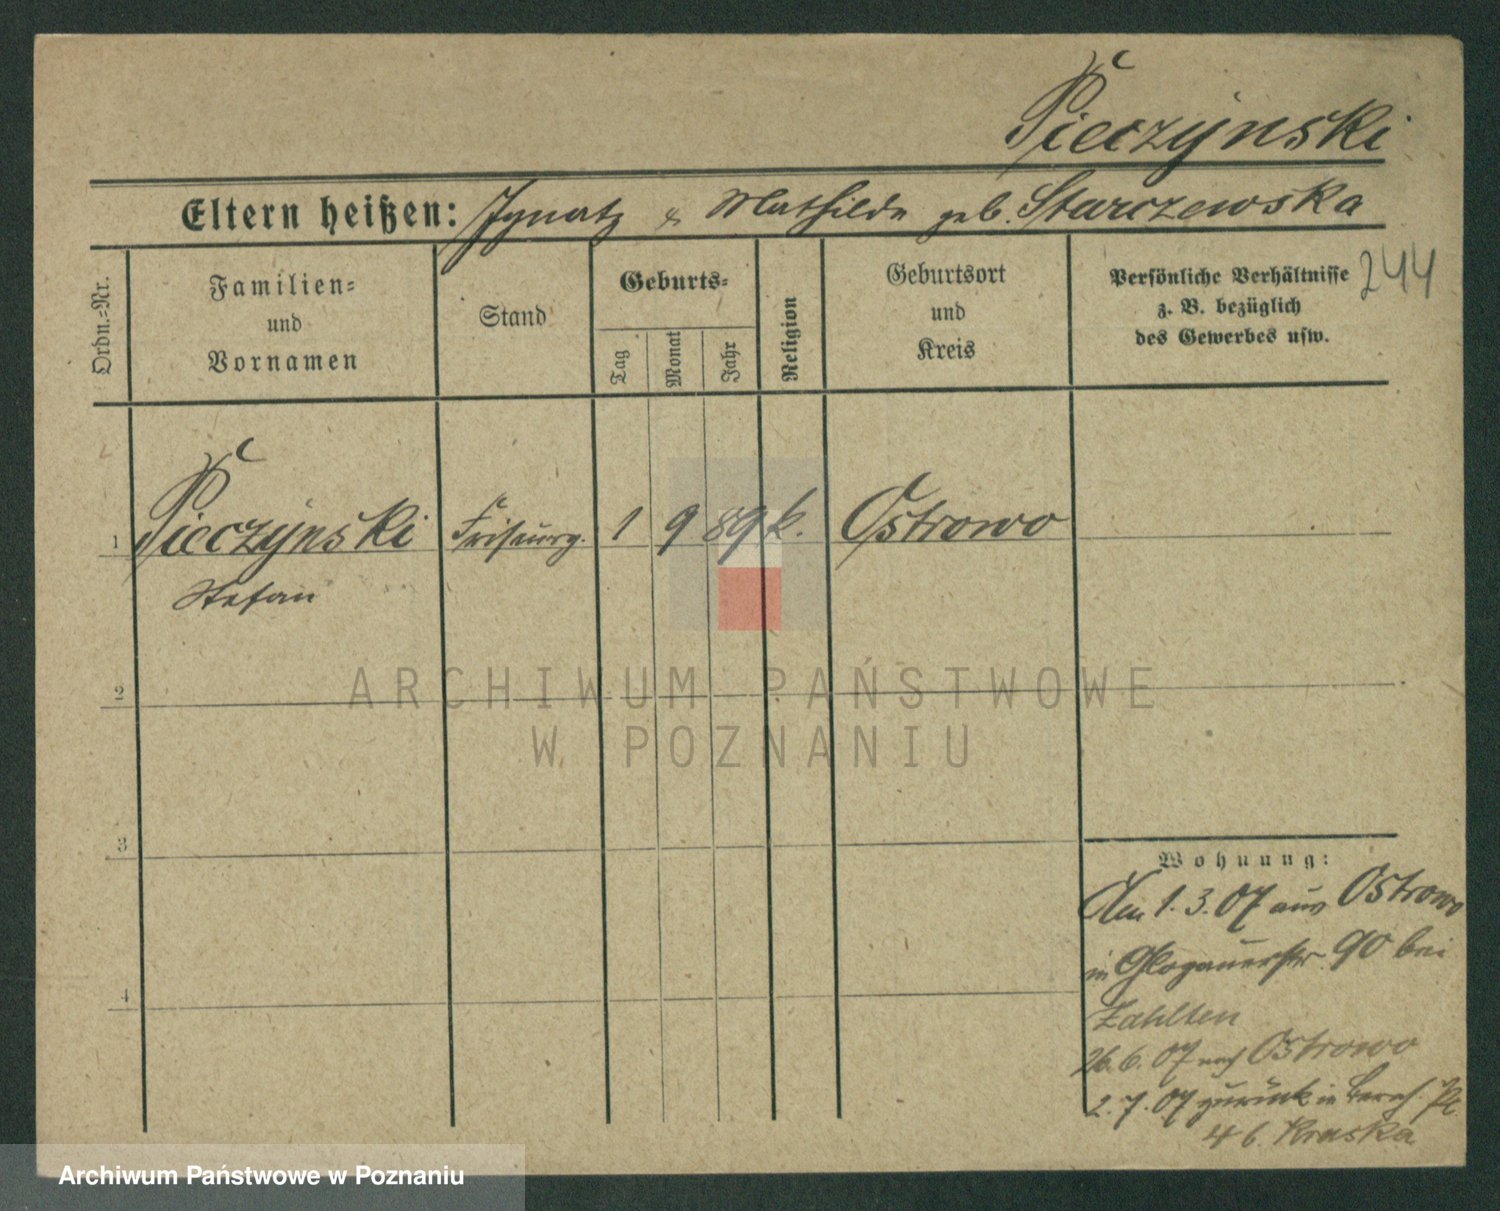 Pieczynski
Eltern heißen: Ignatz & Mathilde geb. Starczewska
Ordn.=Nr.
Familien=
und
Vornamen
Stand
Geburts=
Tag
Monat
Jahr
Religion
Geburtsort
und
Kreis
Persönliche Verhältnisse
z. B. bezüglich
des Gewerbes usw.
244
1 Pieczynski Friseurg. 1 9 89 k. Ostrowo
Stefan
2
3
4
Wohnung:
Am 1. 3. 07 aus Ostrowo
in Glogauerstr. 90 bei
Zahlten
26. 6. 07 nach Ostrowo
2. 7. 07 zurück in Pl.
4 b. Kraska
ARCHIWUM PAŃSTWOWE
W POZNANIU
Archiwum Państwowe w Poznaniu